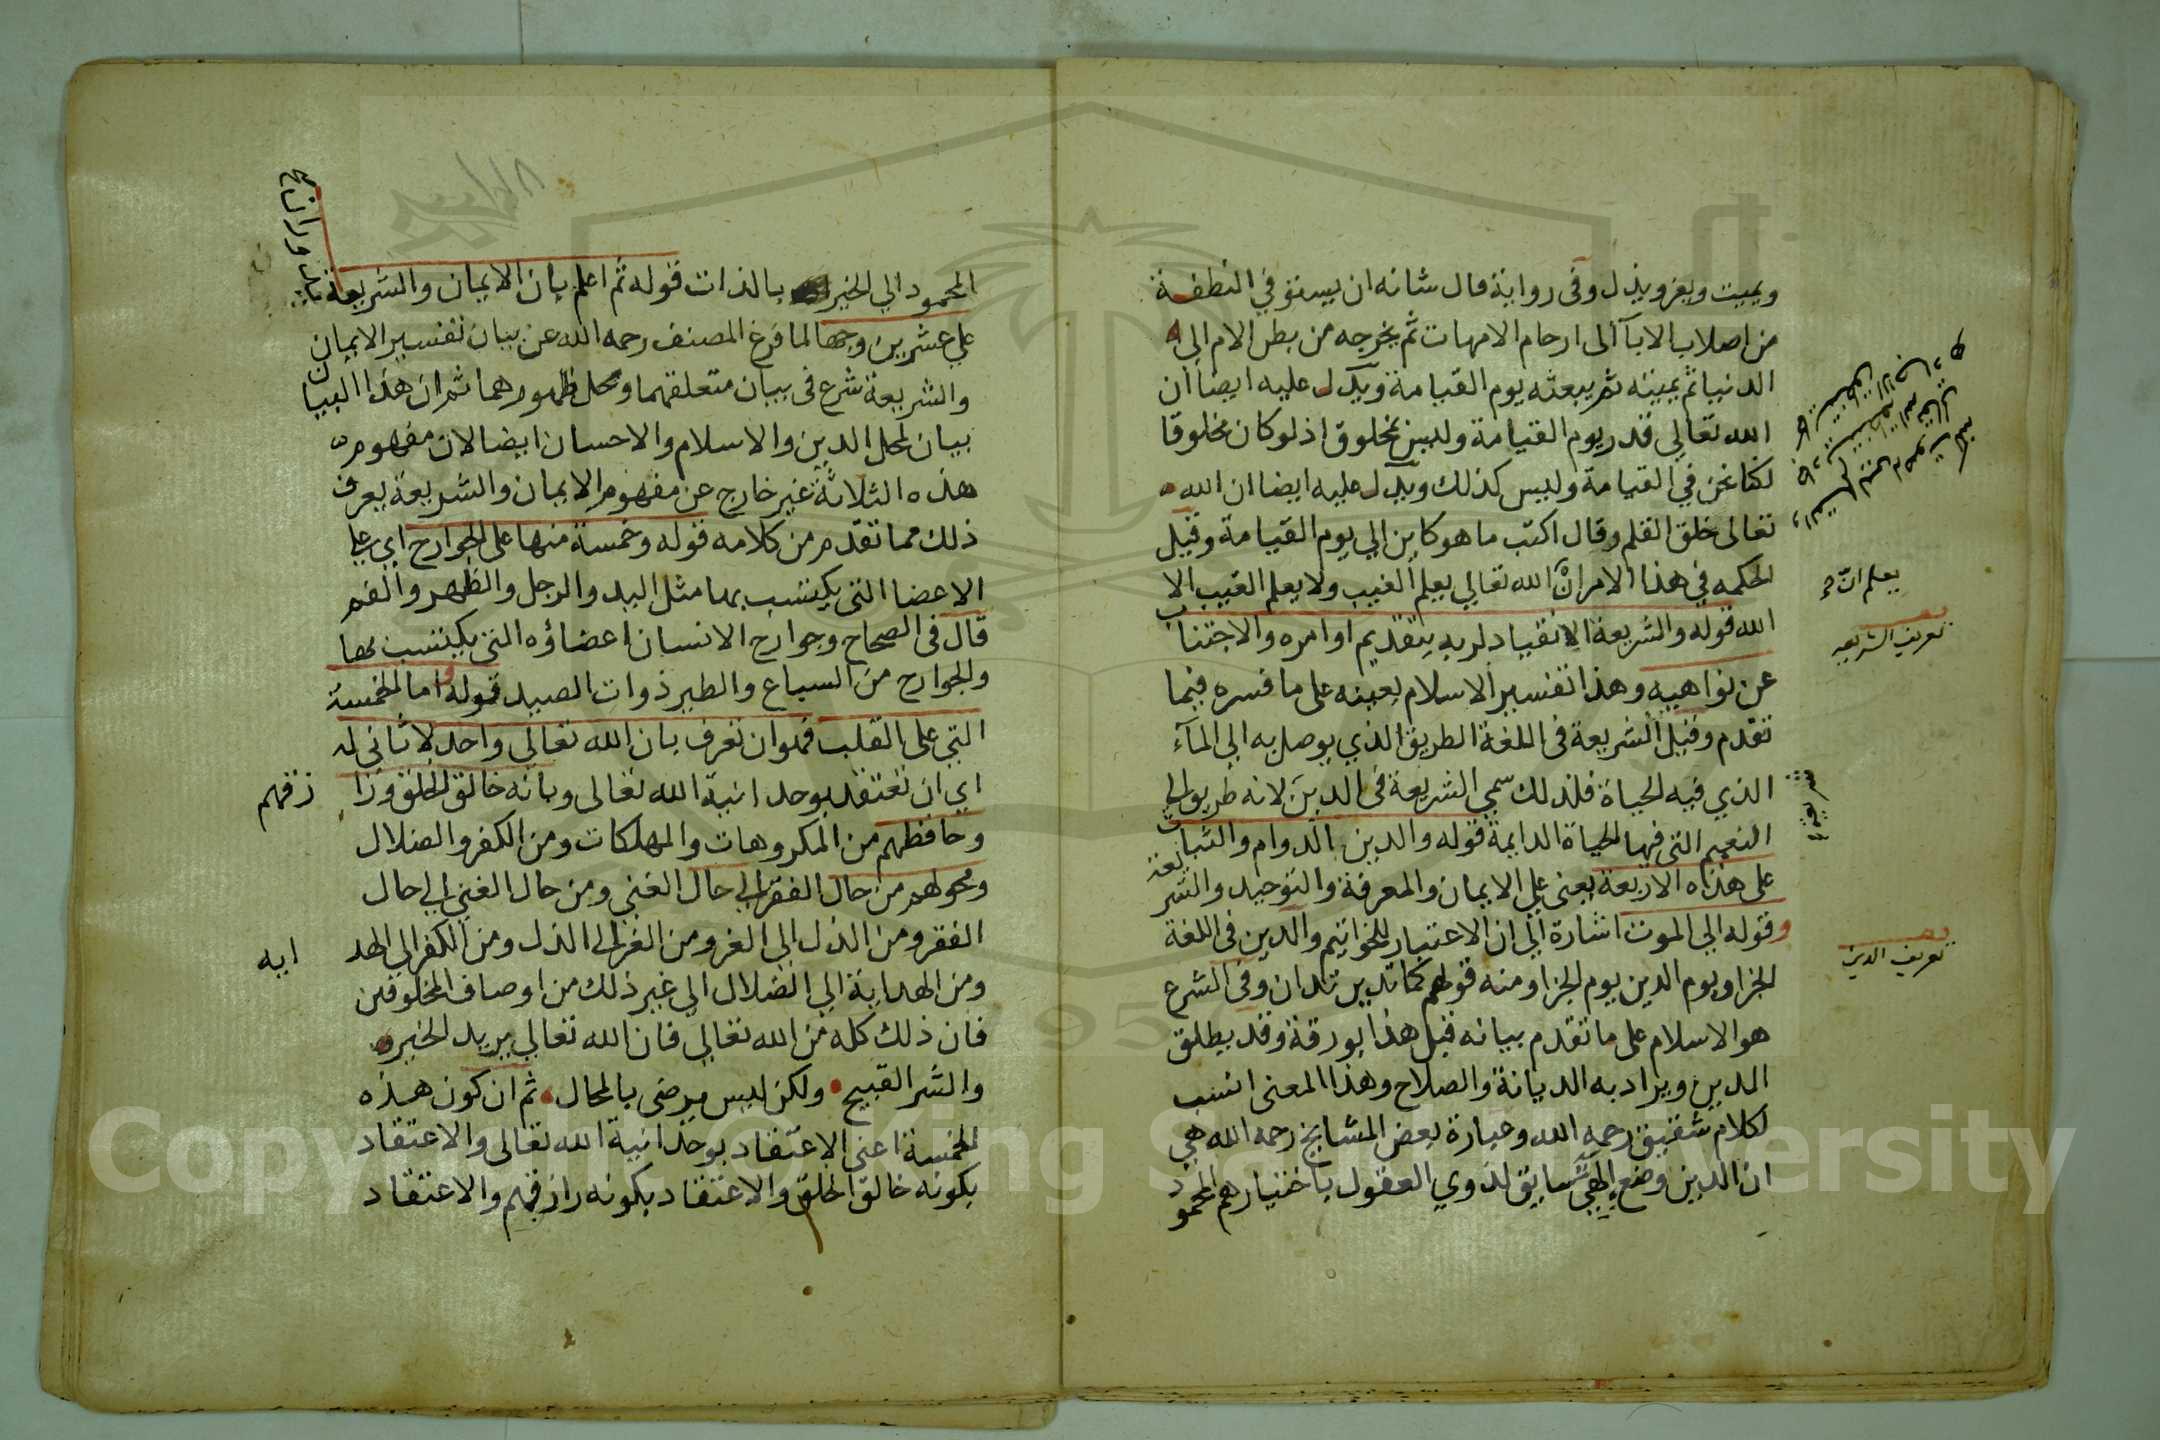 ويميت ويعز ويذل وفى رواية قال شانه ان يسوق في النطفة
من اصلاب الابآ الى ارحام الامهات ثم يخرجه من بطن الام الى
الدنيا ثم يميته ثم يبعثه يوم القيامة ويدل عليه ايضا ان
الله تعالي قدر يوم القيامة وليس بمخلوق اذ لو كان مخلوقا
لكنا نحن في القيامة وليس كذلك ويدل عليه ايضا ان الله
تعالى خلق القلم وقال اكتب ما هو كاين الي يوم القيامة وقيل
الحكمه في هذا الامر ان الله تعالي يعلم الغيب ولا يعلم الغيب الا
الله قوله والشريعة الانقياد لربه بتقديم اوامره والاجتناب
عن نواهيه وهذا تفسير الاسلام بعينه على ما فسره فيما
تقدم وقيل الشريعة فى اللغة الطريق الذي يوصل به الي المآء
الذي فيه الحياة فلذلك سمي الشريعة فى الدين لانه طريق الي
النعيم التى فيها الحياة الدايمة قوله والدين الدوام والثبات
على هذه الاربعة يعنى علي الايمان والمعرفة والتوحيد والشريعة
وقوله الي الموت اشارة الي ان الاعتبار للخواتيم والدين فى اللغة
الجزا ويوم الدين يوم الجزا ومنه قولهم كما تدين تدان وفى الشرع
هو الاسلام على ما تقدم بيانه قبل هذا بورقة وقد يطلق
الدين ويراد به الديانة والصلاح وهذا المعنى انسب
لكلام شقيق رحمه الله وعبارة بعض المشايخ رحمه الله هي
ان الدين وضع الهي سايق لذوي العقول باختيارهم المحمود
يعلم ان
تعريف الشريعه
تعريف الدين
المحمود الي الخير بالذات قوله ثم اعلم بان الايمان والشريعة
علي عشرين وجها لما فرغ المصنف رحمه الله عن بيان تفسير الايمان
والشريعة شرع فى بيان متعلقهما ومحل ظهورهما ثم ان هذا البيان
بيان لمحل الدين والاسلام والاحسان ايضا لان مفهوم
هذه الثلاثة غير خارج عن مفهوم الايمان والشريعة يعرف
ذلك مما تقدم من كلامه قوله وخمسة منها على الجوارح اي علي
الاعضا التى يكتسب بها مثل اليد والرجل والظهر والفم
قال فى الصحاح وجوارح الانسان اعضاؤه التى يكتسب بها
والجوارح من السباع والطير ذوات الصيد قوله اما الخمسة
التي على القلب فهو ان تعرف بان الله تعالي واحد لا ثانى له
اي ان تعتقد بوحدانية الله تعالى وبانه خالق الخلق ورا
زقهم
وحافظهم من المكروهات والمهلكات ومن الكفر والضلال
ومحولهم من حال الفقر الي حال الغني ومن حال الغني الي حال
الفقر ومن الذل الي العز ومن العز الى الذل ومن الكفر الي الهد
ايه
ومن الهداية الي الضلال الي غير ذلك من اوصاف المخلوقين
فان ذلك كله من الله تعالي فان الله تعالي يريد الخير
والشر القبيح ولكن ليس يرضى بالمحال ثم ان كون هذه
الخمسة اعنى الاعتقاد بوحدانية الله تعالى والاعتقاد
بكونه خالق الخلق والاعتقاد بكونه رازقهم والاعتقاد